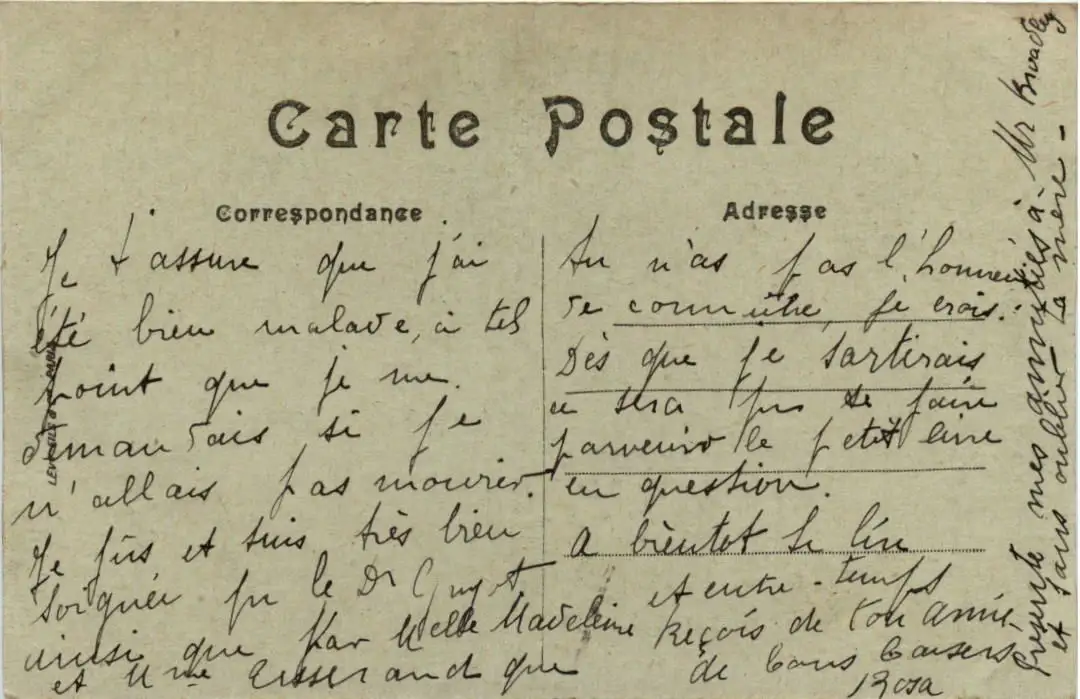 Carte Postale
Correspondance
Adresse
Je t'assure que j'ai
été bien malade, à tel
point que je me
demandais si je
n'allais pas mourir.
Je fus et suis très bien
soignée par le Dr Guyot
ainsi que par Melle Madeleine
et Mme Esserand que
tu n'as pas l'honneur
de connaître, je crois.
Dès que je sortirais
ce sera pour te faire
parvenir le petit livre
en question.
A bientot te lire
et entre-temps
Reçois de ton amie
de bons baisers
Rosa
Présente mes amitiés à Mr Bradley
et sans oublier ta mère -